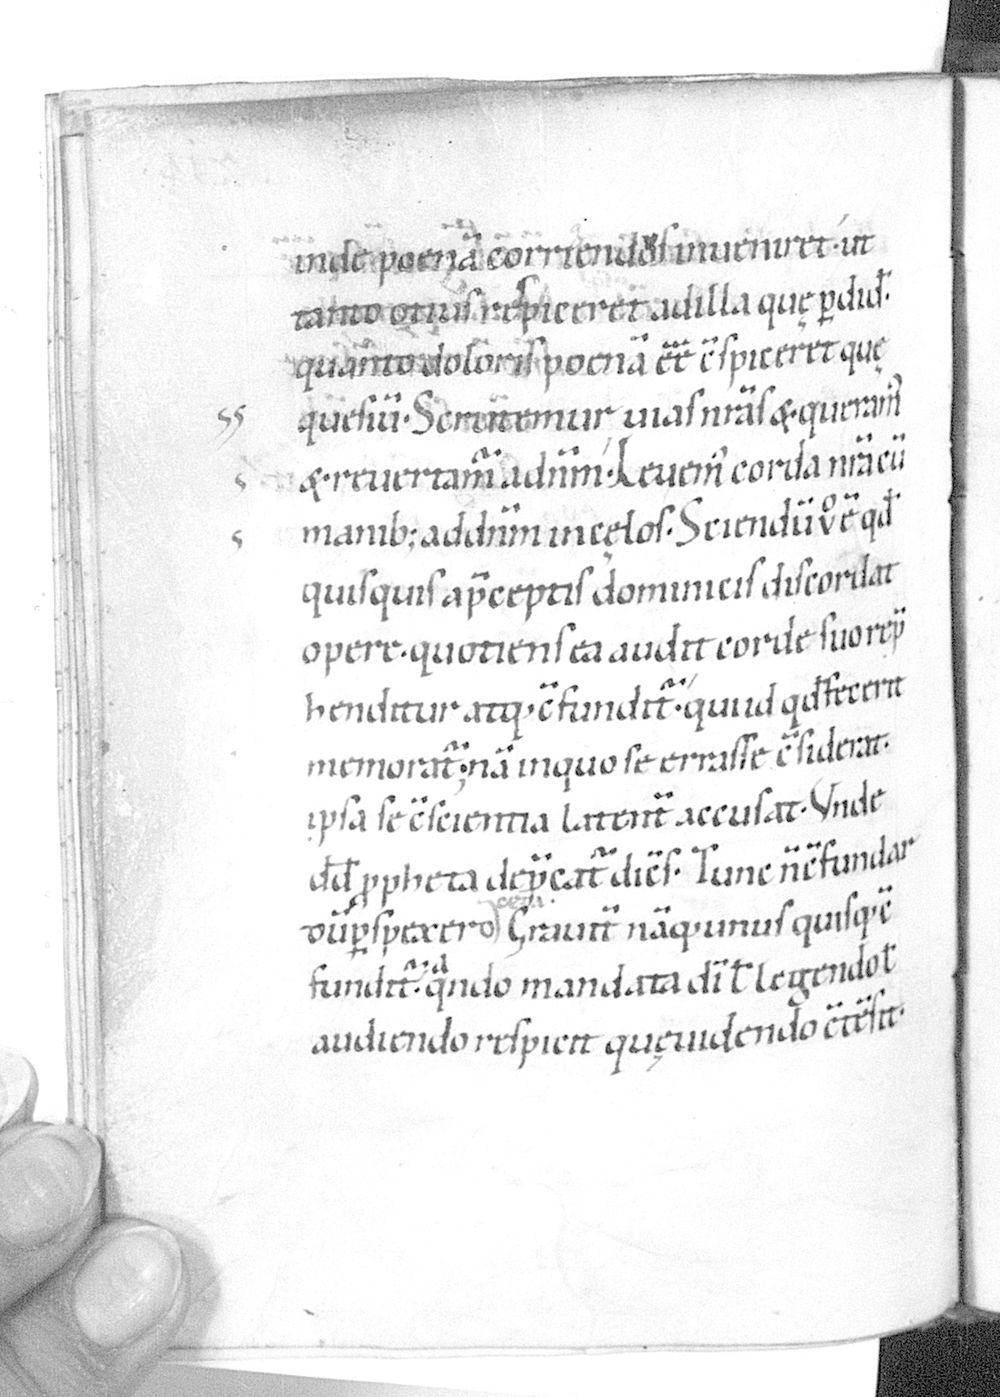 inde poenā corriendos inueniret· ut
tanto otius respiceret ad illa quę ꝑdid̄·
quanto doloris poenā eē̄ c̄spiceret quę
quesiuͥ· Scrutemur uias nr̄as & queram᷒
& reuertam̄ ad dn̄m· Leuem᷒ corda nr̄a cū
manib; ad dn̄m in cęlos· Sciendū ūo ē qd̄
quisquis a p̄ceptis dominicis discordat
opere· quotiens ea audit corde suo rep̄
henditur atq· c̄fundit̄· quiud qd̄ fecerit
memorat̄· nā in quo se errasse c̄siderat·
ipsa se c̄scientia latent̄ accusat· Vnde
dd̄ ꝓpheta dep̄cat̄ dic̄s· Tunc n̄ c̄fundar
dū ꝑspexero cetͣ· Grauit̄ nāq· unus quisq· c̄
fundit̄· qͣndo mandata dī t̄ legendo t̄
audiendo respicit quę uidendo c̄tēsit·